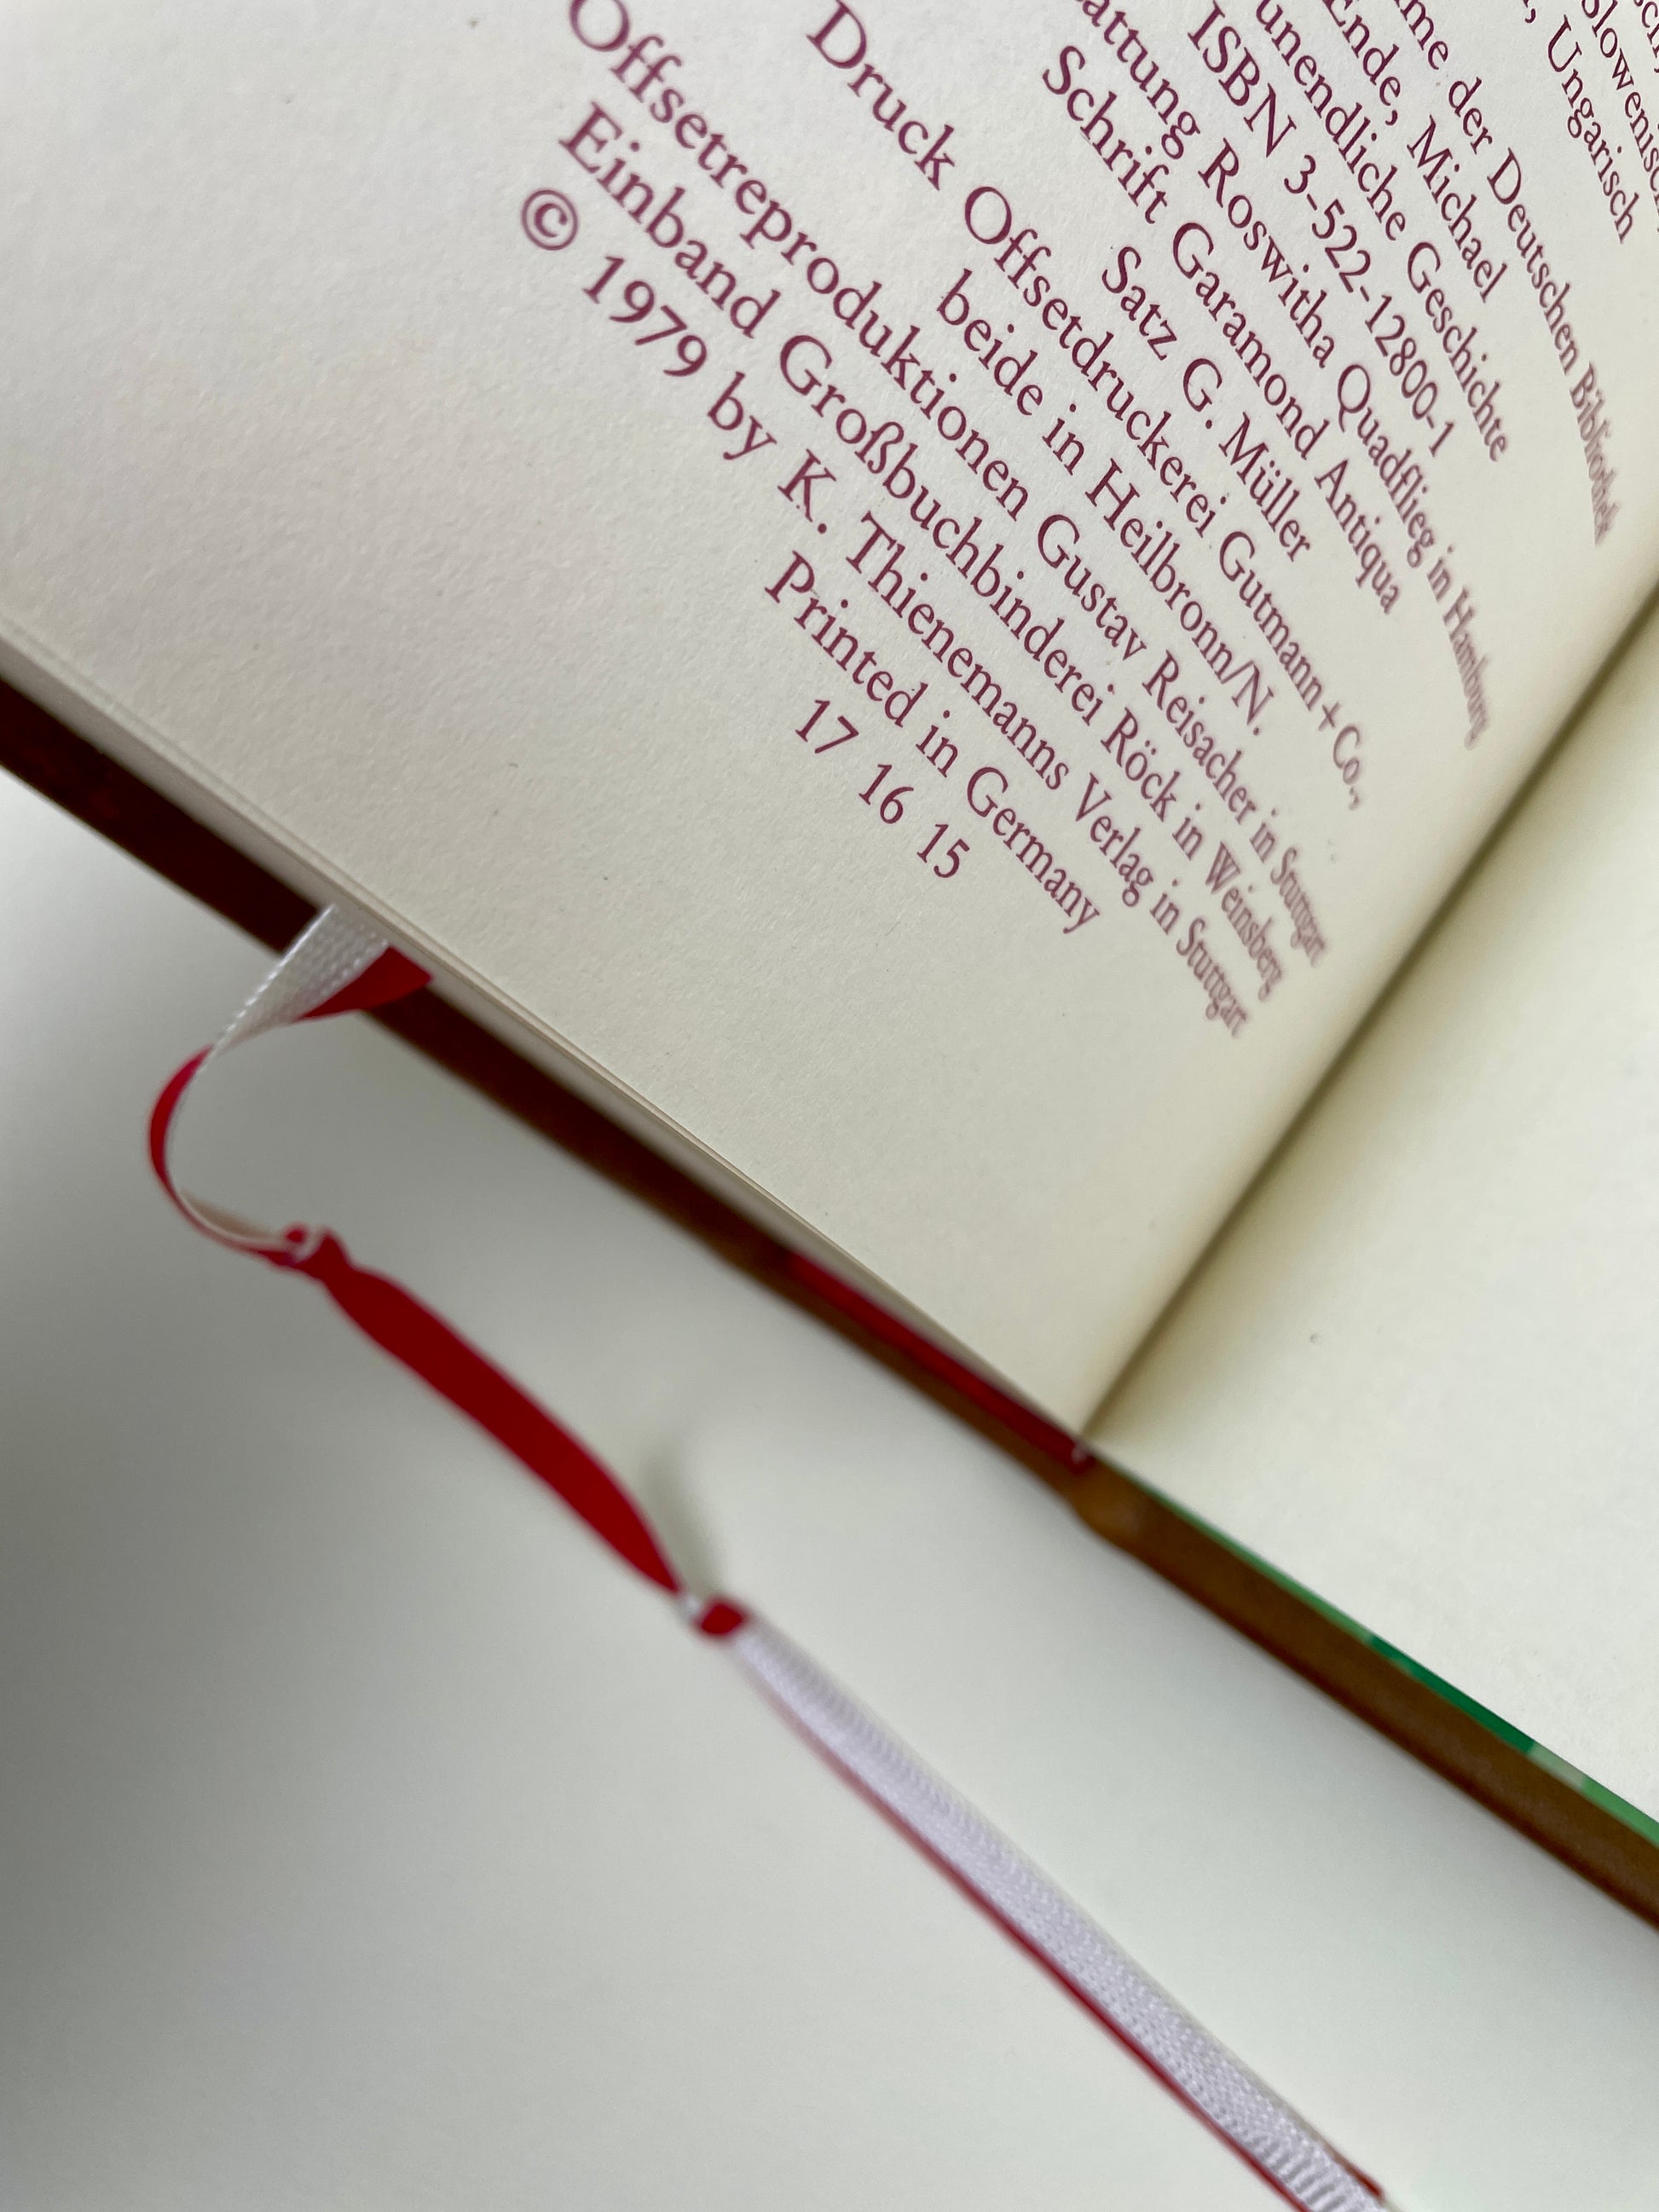 Slowenisch,
Ungarisch
der Deutschen Bibliothek
Ende, Michael
unendliche Geschichte
ISBN 3-522-12800-1
Roswitha Quadflieg in Hamburg
Schrift Garamond Antiqua
Satz G. Müller
Druck Offsetdruckerei Gutmann + Co.,
beide in Heilbronn/N.
Offsetreproduktionen Gustav Reisacher in Stuttgart
Einband Großbuchbinderei Röck in Weinsberg
© 1979 by K. Thienemanns Verlag in Stuttgart
Printed in Germany
17 16 15